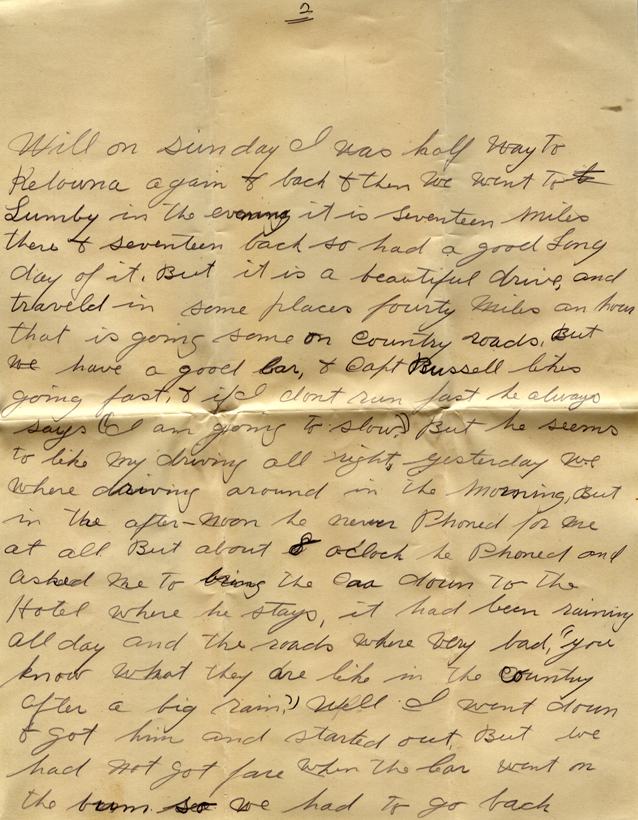 2
Will on sunday I was half way to
Kelowna again & back & then we went to
Lumby in the evening it is seventeen Miles
there & seventeen back so had a good Long
day of it. But it is a beautiful drive, and
traveld in some places fourty Miles an hour
that is going some on country roads. But
we have a good Car, & Capt Bussell likes
going fast, & if I dont run fast he always
says (I am going to slow.) But he seems
to like my driving all right, yesterday we
where driving around in the Morning, But
in the after-noon he never Phoned for me
at all But about 8 oclock he Phoned and
asked me to bring the Car down to the
Hotel where he stays, it had been raining
all day and the roads where very bad, "you
know what they are like in the Country
after a big rain.") Well I went down
& got him and started out, But we
had not got fare when the Car went on
the bum so we had to go back